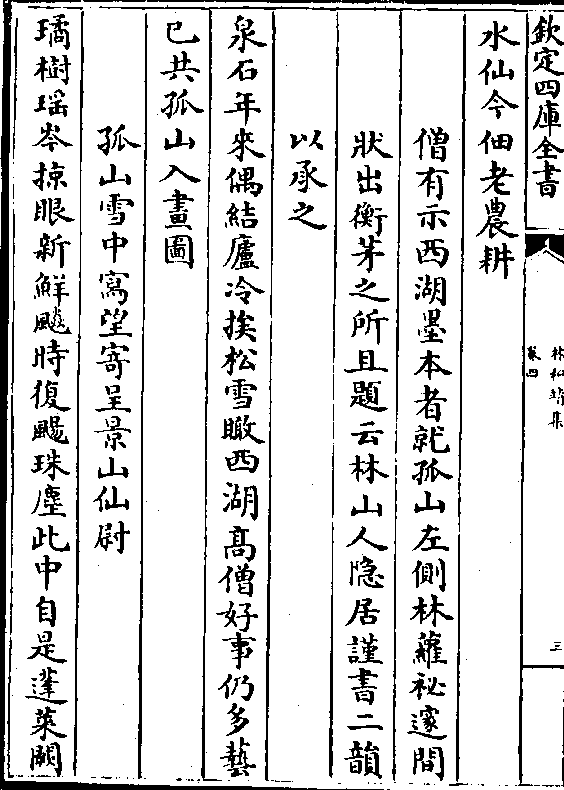 欽定四庫全書
林和靖集
卷四
三
水仙今佃老農耕
僧有示西湖墨本者就孤山左側林蘿祕邃間
狀出衡茅之所且題云林山人隐居謹書二韻
以承之
泉石年來偶結廬冷挨松雪瞰西湖髙僧好事仍多藝
已共孤山入畫圖
孤山雪中寫望寄呈景山仙尉
璚樹瑶岑掠眼新鮮飈時復颺珠塵此中自是蓬萊闕